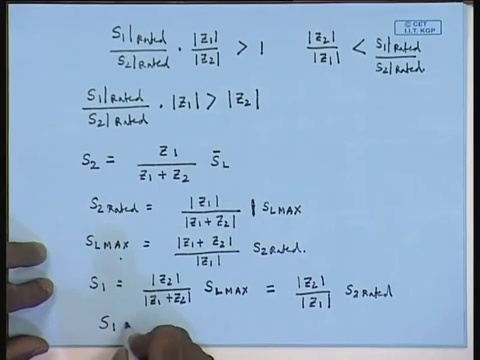 © CET
I.I.T. KGP
S1|Rated / S2|Rated · |Z1| / |Z2| > 1    |Z2| / |Z1| < S1|Rated / S2|Rated
S1|Rated / S2|Rated · |Z1| > |Z2|
S2 = Z1 / Z1 + Z2 S̄L
S2 Rated = |Z1| / |Z1 + Z2| | SLMAX
SLMAX = |Z1 + Z2| / |Z1| S2 Rated.
S1 = |Z2| / |Z1 + Z2| SLMAX = |Z2| / |Z1| S2 Rated
S1